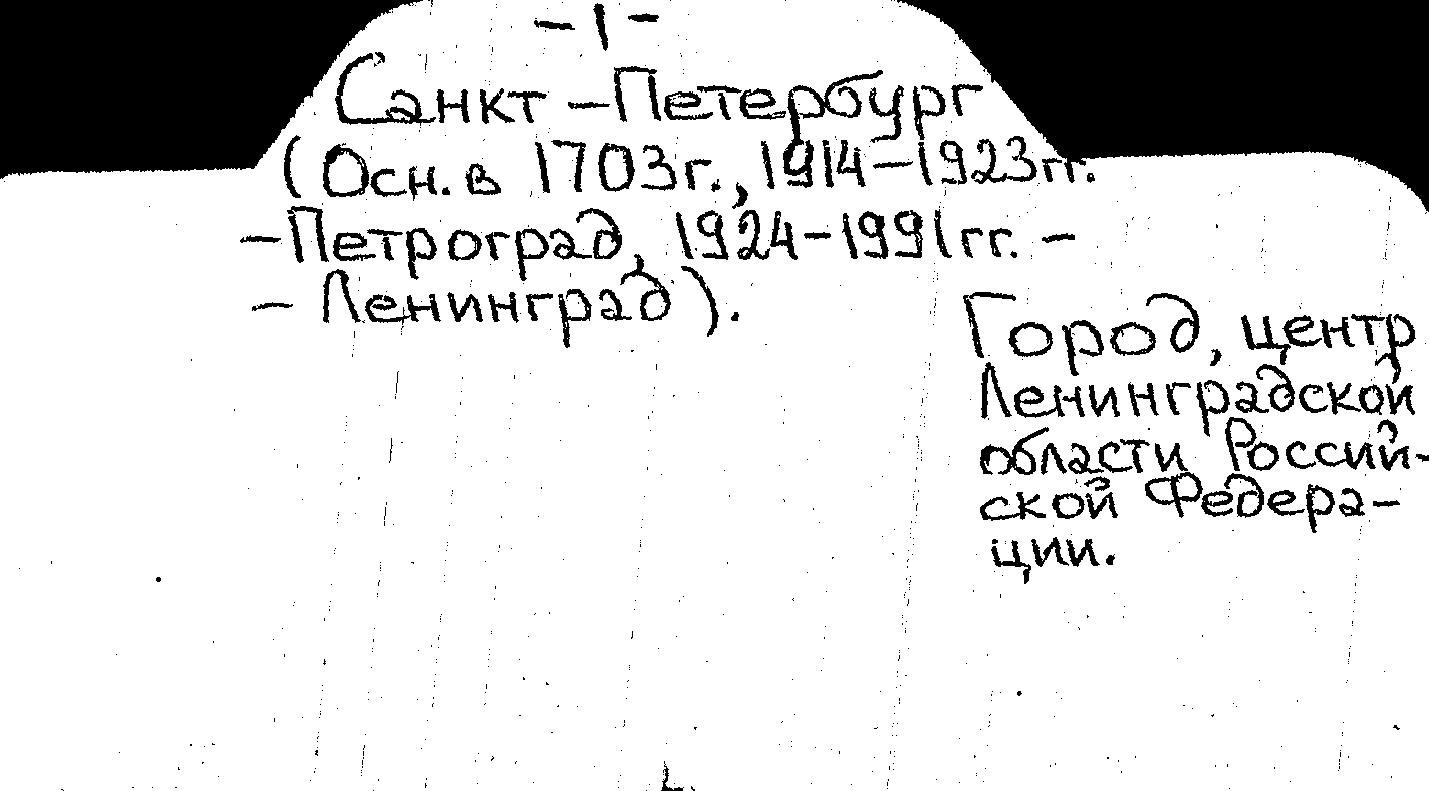 - 1 -
Санкт-Петербург
(Осн. в 1703г., 1914-1923гг.
-Петроград, 1924-1991гг. -
- Ленинград).
Город, центр
Ленинградской
области Россий-
ской Федера-
ции.